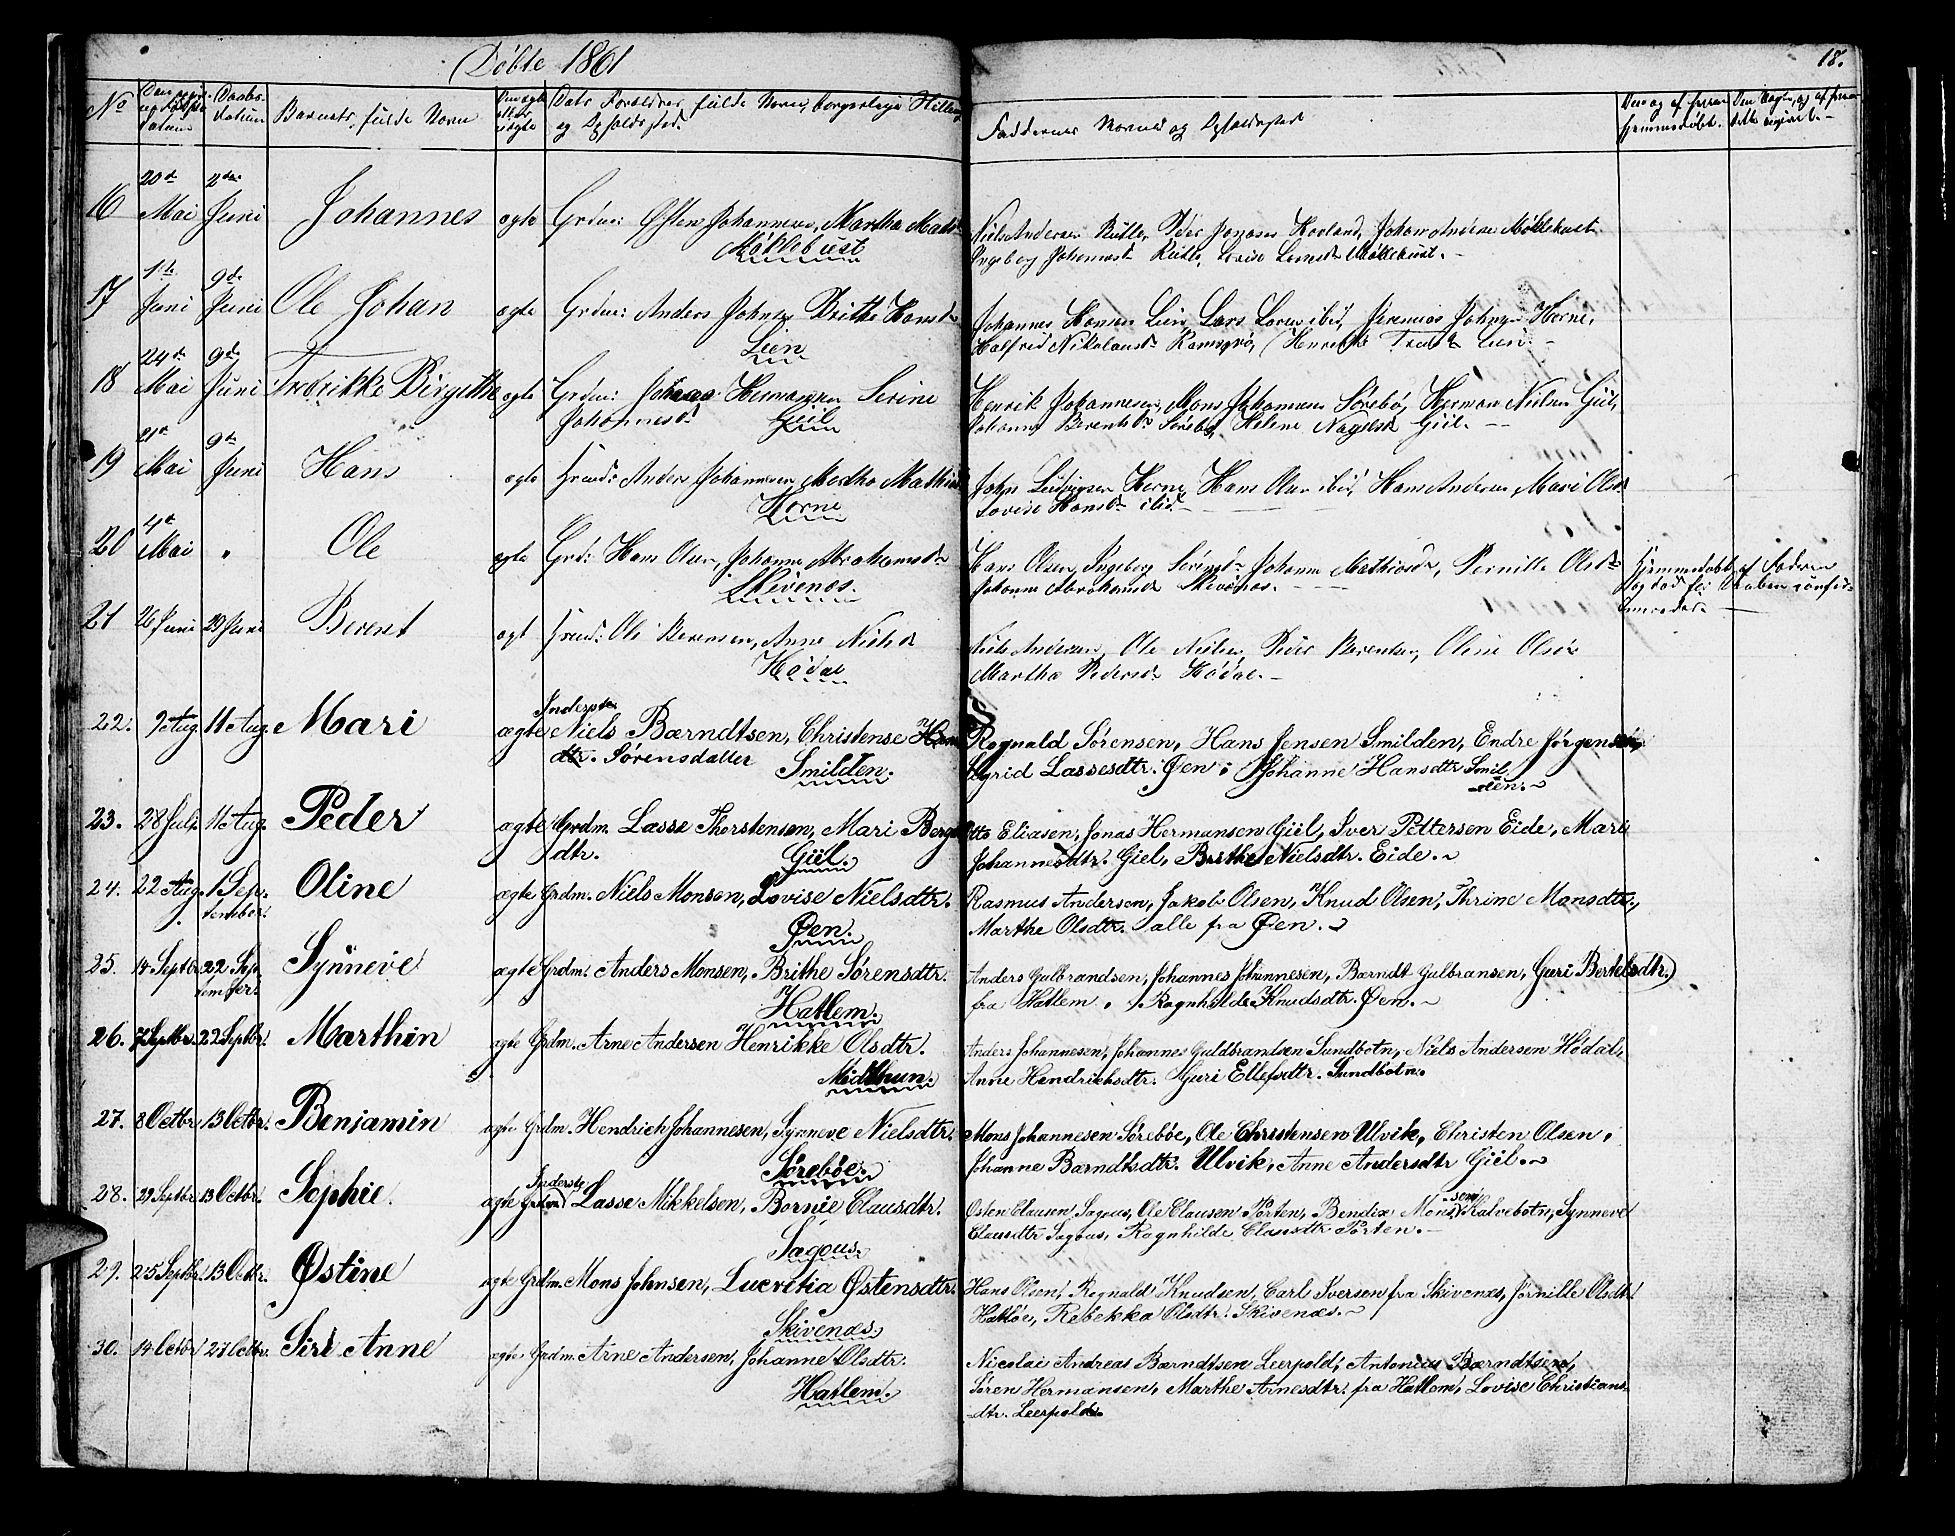 Døbte 1861
18.
No Barnets fulde Navn Faddernes Navne og Opholdssted
16 20de Mai 2den Juni Johannes ægte Grdm: Østen Johannesen, Martha Mads
Møklebust
Niels Andersen Rutle, Peder Jonasen Hovland, Johan Andersen Møklebust
Ingeborg Johannesd Rutle, Lovise Larsd Møklebust.
17 1ste Juni 9de Juni Ole Johan ægte Grdm: Anders Johnsen Brithe Hansd
Lien
Johannes Hansen Lien, Lars Larsen ibid, Jeremias Johnsen Herne,
Halfrid Nikolausd Ramsgrø,
18 24de Mai 9de Juni Fredrikke Birgithe ægte Grdm: Johannes Hermansen Serine
Johannesd Giil
Henrik Johannesen, Mons Johannesen Sørebø, Herman Nielsen Giil,
Johanne Berentsd Sørebø, Helene Giil
19 21de Mai 9de Juni Hans ægte Anders Johannesen, Martha Mathias
Herne
John Ludvigsen Herne, Hans Olsen ibid, Hans Andersen, Mari Olsd
Lovise Hansdr ibid
20 4de Mai " Ole ægte Grd: Hans Olsen, Johanne Abrahamsd
Skivenes.
Hans Olsen, Ingeborg Johanne Mathiasd, Pernille Olsd
Johanne Abrahamsd Skivenes. Hjemmedøbt af Faderen
21 26 Juni 29 Juni Berent ægt Ole Berensen, Anne Nielsd
Hødal
Niels Andersen, Ole Nielsen, Peder Berentsen, Oline Olsd
Martha Pedersd Hødal.
22. 9 Aug. 11 Aug. Mari ægte Inderste Niels Barndtsen, Christense Hans
dtr. Sørensdatter Smilden.
Rognald Sørensen, Hans Jensen Smilden, Endre Jørgensen,
Sigrid Lassesdtr. Øen, Johanne Hansdtr Smil
den.
23. 28 Juli 11 Aug. Peder ægte Grdm. Lasse Thorstensen, Mari Berge
dtr. Giil.
Otto Eliasen, Jonas Hermansen Giil, Iver Pettersen Eide, Mari
Johannesdtr. Giel, Brithe Nielsdtr. Eide.
24. 22 Aug. 1 Sep. Oline ægte Grdm. Niels Monsen, Lovise Nielsdtr.
tember. Øen.
Rasmus Andersen, Jakob Olsen, Knud Olsen, Thrine Monsdtr.,
Marthe Olsdtr. alle fra Øen.
25. 14 Septbr. 22 Sep Synneve ægte Grdm. Anders Monsen, Brithe Sørensdtr.
tember. Hatlem.
Anders Gulbrandsen, Johannes Johannesen, Barndt Gulbransen, Guri Bertelsdtr.)
fra Hatlem. Ragnhilde Knudsdtr. Øen.
26. 7 Septbr. 22 Septbr. Marthin ægte Grdm. Arne Andersen Henrikke Olsdtr.
Midthun.
Anders Johannesen, Johannes Guldbrandsen Sundbotn, Niels Andersen Hødal,
Anne Hendrichsdtr. Guri Ellefsdtr. Sundbotn.
27. 8 Octbr. 13 Octbr. Benjamin ægte Grdm. Hendrich Johannesen, Synneve Nielsdtr.
Sørebøe.
Mons Johannesen Sørebøe, Ole Christensen Ulvik, Christen Olsen,
Johanne Barndtsdtr. Ulvik, Anne Andersdtr Giel.
28. 29 Septbr 13 Octbr. Sophie. ægte Inderste Lasse Mikkelsen, Bornie Clausdtr.
Sagous.
Østen Clausen Sagous, Ole Clausen Porten, Bendix Monssen Kalvebotn, Synneve
Clausdtr Sagous, Ragnhilde Clausdtr Porten.
29. 25 Septbr. 13 Octbr. Østine ægte Grdm. Mons Johnsen, Lucretia Østensdtr.
Skivenæs.
Hans Olsen, Rognald Knudsen, Carl Iversen fra Skivenæs, Jørnille Olsdtr
Hatløe, Rebekka Olsdtr. Skivenæs.
30. 14 Octbr 27 Octbr. Siri Anne ægte Grdm. Arne Andersen, Johanne Olsdtr.
Hatlem.
Nicolai Andreas Barndtsen Leerpold, Antonius Barndtsen,
Søren Hermansen, Marthe Arnesdtr. fra Hatlem, Lovise Christians
-dtr. Leerpold.